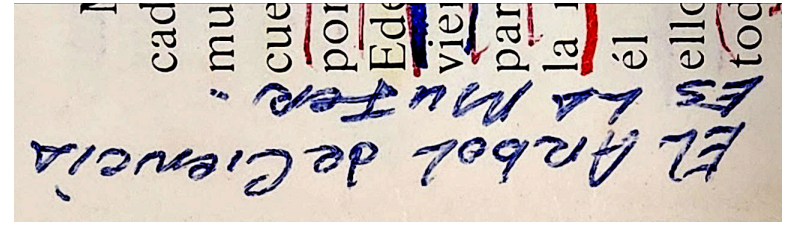 cad
mu
cue
por
Ede
vier
par
la
él
ello
tod
EL Arbol de Ciencia
Es LA MuJer.